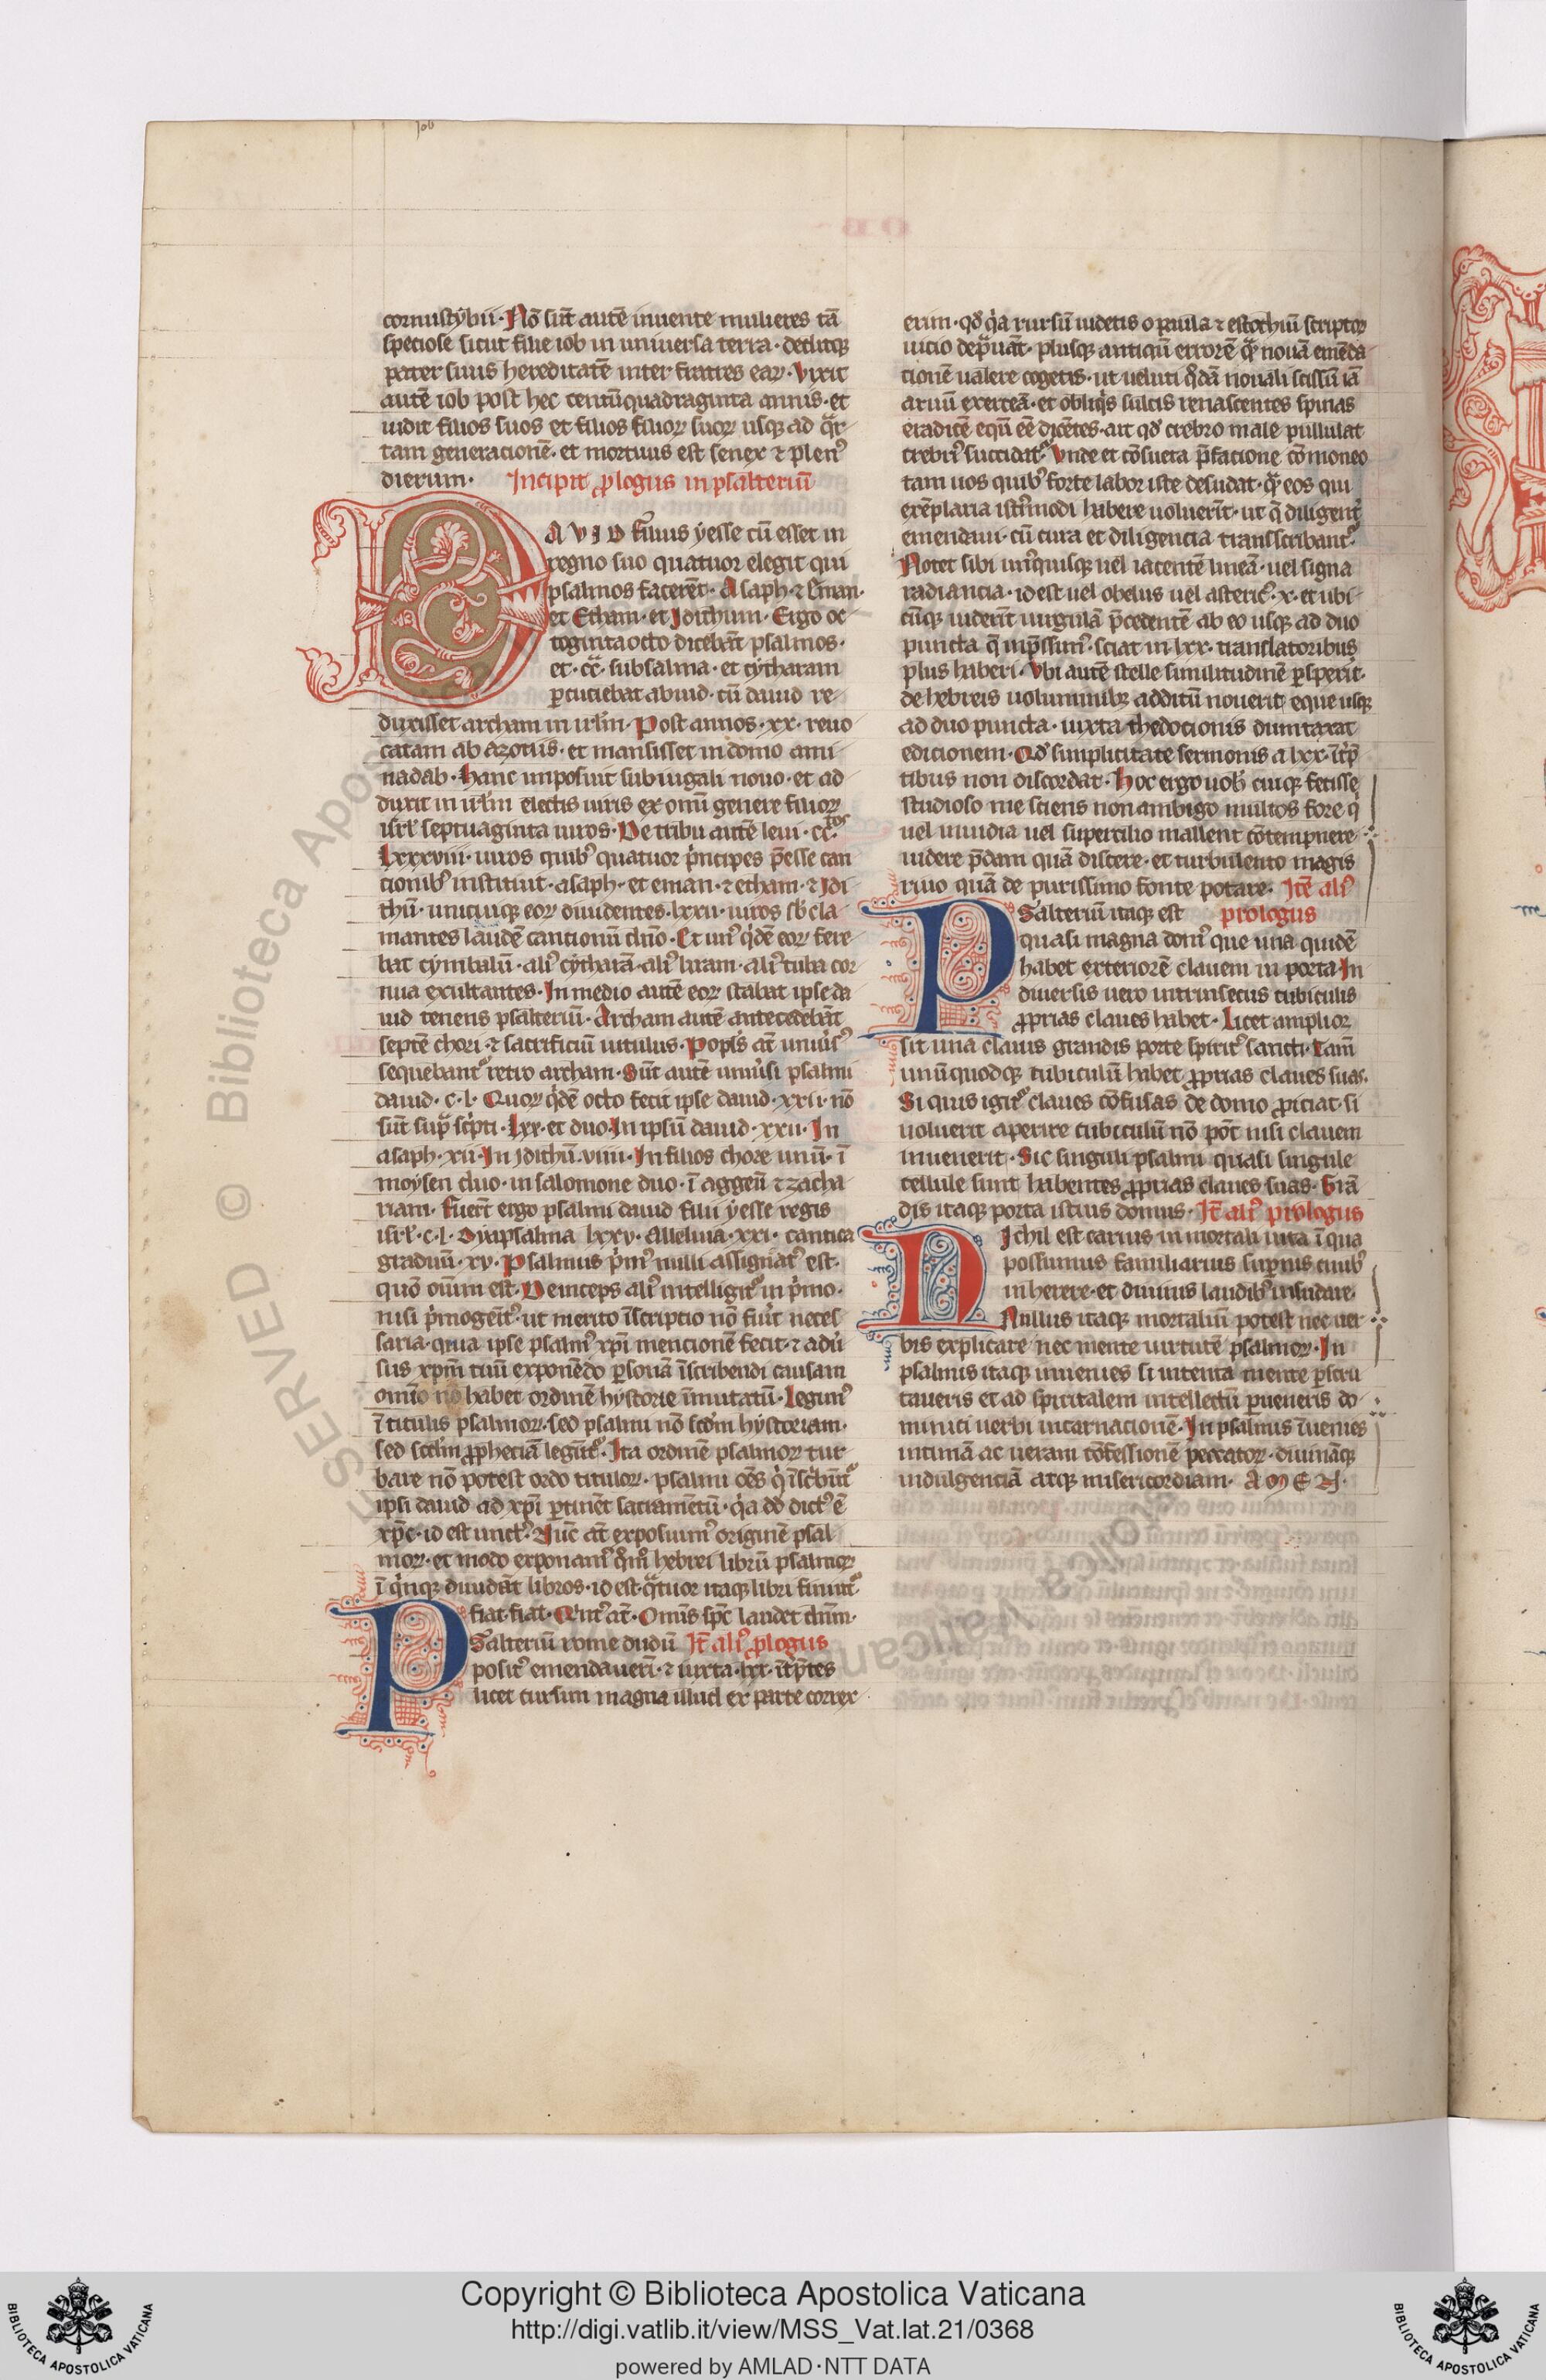 Job
cornustybii. Nō sūt autē inuente mulieres tā
speciose sicut filie iob in uniuersa terra. deditqꝫ
pater suus hereditatē inter fratres eaꝝ. Vixit
autē iob post hec centūquadraginta annis. et
uidit filios suos et filios filioꝝ suoꝝ usqꝫ ad qͣr
tam generacionē. et mortuus est senex ⁊ plenꝰ
dierum. Incipit ꝓlogus in psalteriū
DAVID filius yesse cū esset in
regno suo quatuor elegit qui
psalmos facerēt. Asaph. ⁊ Eman.
et Etham. et Jdithum. Ergo oc
toginta octo dicebāt psalmos.
et. cͨͣ. subsalma. et cytharam
ꝑcuciebat abiud. cū dauid re
duxisset archam in irlm̄. Post annos. xx. reuo
catam ab azotiis. et mansisset in domo ami
nadab. Hanc imposuit subiugali nouo. et ad
duxit in irlm̄ electis uiris ex omī genere filioꝝ
isrl̄ septuaginta uiros. De tribu autē leui. cc.ᵗᵒˢ
Lxxxviii. uiros quibꝰ quatuor pͥncipes p̄esse can
cionibꝰ instituit. asaph. et eman. ⁊ etham. ⁊ Jdi
thū. unicuiqꝫ eoꝝ diuidentes. lxxii. uiros sb̄cla
mantes laudē cancionū dn̄o. Et unꝰ qͥdē eoꝝ fere
bat cymbalū. aliꝰ cytharā. aliꝰ liram. aliꝰ tuba cor
nua exultantes. In medio autē eoꝝ stabat ipse da
uid tenens psalteriū. Archam autē antecedebāt
septē chori. ⁊ sacrificiū uitulus. Popl̄s at̄ uniūsꝰ
sequebantᷣ retro archam. Sūt autē uniūsi psalmi
dauid. c. l. Quoꝝ qͥdē octo fecit ipse dauid. xxii. nō
sūt supͣ scͥpti. Lxx. et duo. In ipsū dauid. xxii. In
asaph. xii. In Jdithū. viiii. In filios chore unū. ī
moysen duo. in salomone duo. ī aggeū ⁊ zacha
riam. Fuerūt ergo psalmi dauid filii yesse regis
isrl̄. c. l. Diapsalma lxxv. Alleluia. xxi. cantica
graduū. xv. Psalmus pͥmꝰ nulli assignatꝰ est.
quō oīum est. Deinceps aliꝰ intelligitᷣ in pͥmo.
nisi pͥmogeītꝰ. ut merito īscriptio nō fūit neces
saria. quia ipse psalmꝰ xp̄i mencionē fecit. ⁊ adū
sus xp̄m tuū exponēdo ꝑsonā īscribendi causam
omīo nō habet ordinē hystorie īmutatū. Legimꝰ
ī titulis psalmoꝝ. sed psalmi nō scd̄m hystoriam.
sed scd̄m ꝓpheciā legūtᷣ. Ita ordinē psalmoꝝ tur
bare nō potest ordo tituloꝝ. psalmi oēs qͥ īscͥbūtᷣ
ipsi dauid ad xp̄i ꝑtinēt sacramētū. qͥa dd̄ dictꝰ ē
xp̄c. id est unctꝰ. Nūc at̄ exposuimꝰ originē psal
moꝝ. et modo exponamꝰ qͦmͦ hebrei librū psalmoꝝ
ī qͥnqꝫ diuidāt libros. id est. qͣtuor itaqꝫ libri finiūtᷣ
fiat. fiat. Qͥntꝰ at̄. Omīs sp̄c laudet dn̄m.
PSalteriū rome dudū It̄ aliꝰ ꝓlogus
positꝰ emendauerā. ⁊ iuxta. lxx. īt̄p̄tes
licet cursim magna illud ex parte correx
erim. qd̄ qͥa rursū uidetis o paula ⁊ estochiū scriptoꝝ
uicio dep̄uāt. plusqꝫ antiquū errorē qͣꝫ nouā emēda
cionē ualere cogetis. ut ueluti qͥdā nouali scissū iā
aruū exerceā. et obliqͥs sulcis renascentes spinas
eradicē equū eē dicētes. ait qd̄ crebro male pullulat
crebriꝰ succidatᷣ. Vnde et cōsueta p̄facione cōmoneo
tam uos quibꝰ forte labor iste desudat. qͣꝫ eos qui
exēplaria istꝰmodi habere uoluerīt. ut q̄ diligentͥ
emendaui. cū cura et diligencia transscribantᷣ.
Notet sibi unꝰquisqꝫ uel iacentē lineā. uel signa
radiancia. id est uel obelus uel astericꝰ. x. et ubi
cūqꝫ uiderit uirgulā p̄cedentē ab eo usqꝫ ad duo
puncta q̄ inp̄ssimꝰ. sciat in lxx. translatoribus
plus haberi. Vbi autē stelle similitudinē ꝑspexit.
de hebreis uoluminibꝫ additū nouerit eque usqꝫ
ad duo puncta. iuxta thedocionis dumtaxat
edicionem. Qd̄ simplicitate sermonis a lxx. īt̄p̄
tibus non discordat. Hoc ergo uob̄ cuiqꝫ fecisse
studioso me sciens non ambigo multos fore qͥ
uel inuidia uel supercilio mallent cōtempnere
uidere p̄clam quā discere. et turbulento magis
riuo quā de purissimo fonte potare. Itē aliꝰ
PSalteriū itaqꝫ est prologus
quasi magna domꝰ que una quidē
habet exteriorē clauem in porta. In
diuersis uero intrinsecus cubiculis
ꝓprias claues habet. Licet amplior
sit una clauis grandis porte spiritꝰ sancti. tam̄
unūquodqꝫ cubiculū habet ꝓprias claues suas.
Si quis igitᷣ claues cōfusas de domo ꝓiciat. si
uoluerit aperire cubiculū nō pōt nisi clauem
inuenerit. Sic singuli psalmi quasi singule
cellule sunt habentes ꝓprias claues suas. Grā
dis itaqꝫ porta istius domus. It̄ aliꝰ prologus
NIchil est carius in mortali uita ī qua
possumus familiarius suꝑnis ciuibꝰ
inherere. et diuinis laudibꝰ insudare.
Nullus itaqꝫ mortaliū potest nec uer
bis explicare nec mente uirtutē psalmoꝝ. In
psalmis itaqꝫ inuenies si intenta mente ꝑscru
taueris et ad spiritalem intellectū ꝑueneris do
minici uerbi incarnacionē. In psalmis īuenies
intimā ac ueram cōfessionē peccatoꝝ. diuināqꝫ
indulgenciā atqꝫ misericordiam. AMEN.
Copyright © Biblioteca Apostolica Vaticana
http://digi.vatlib.it/view/MSS_Vat.lat.21/0368
powered by AMLAD·NTT DATA
BIBLIOTECA APOSTOLICA VATICANA
BIBLIOTECA APOSTOLICA VATICANA